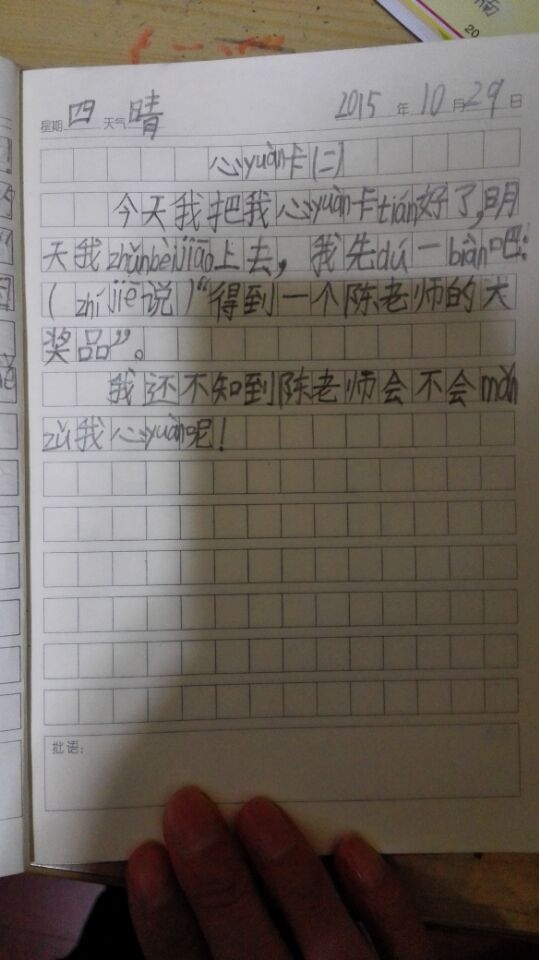 星期 四 天气 晴 2015 年 10 月 29 日
心yuàn卡(二)
今天我把我心yuàn卡tián好了,明
天我zhǔnbèijiāo上去，我先dú一biàn吧:
(zhíjiē说)“得到一个陈老师的大
奖品”。
我还不知到陈老师会不会mǎn
zú我心yuàn呢!
批语:
20